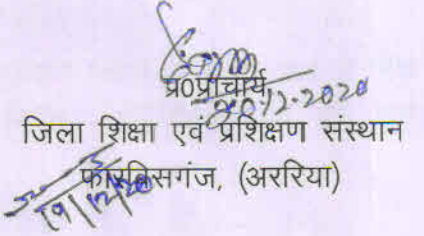 प्र०प्राचार्य
20.12.2020
जिला शिक्षा एवं प्रशिक्षण संस्थान
फारबिसगंज, (अररिया)
19/12/20